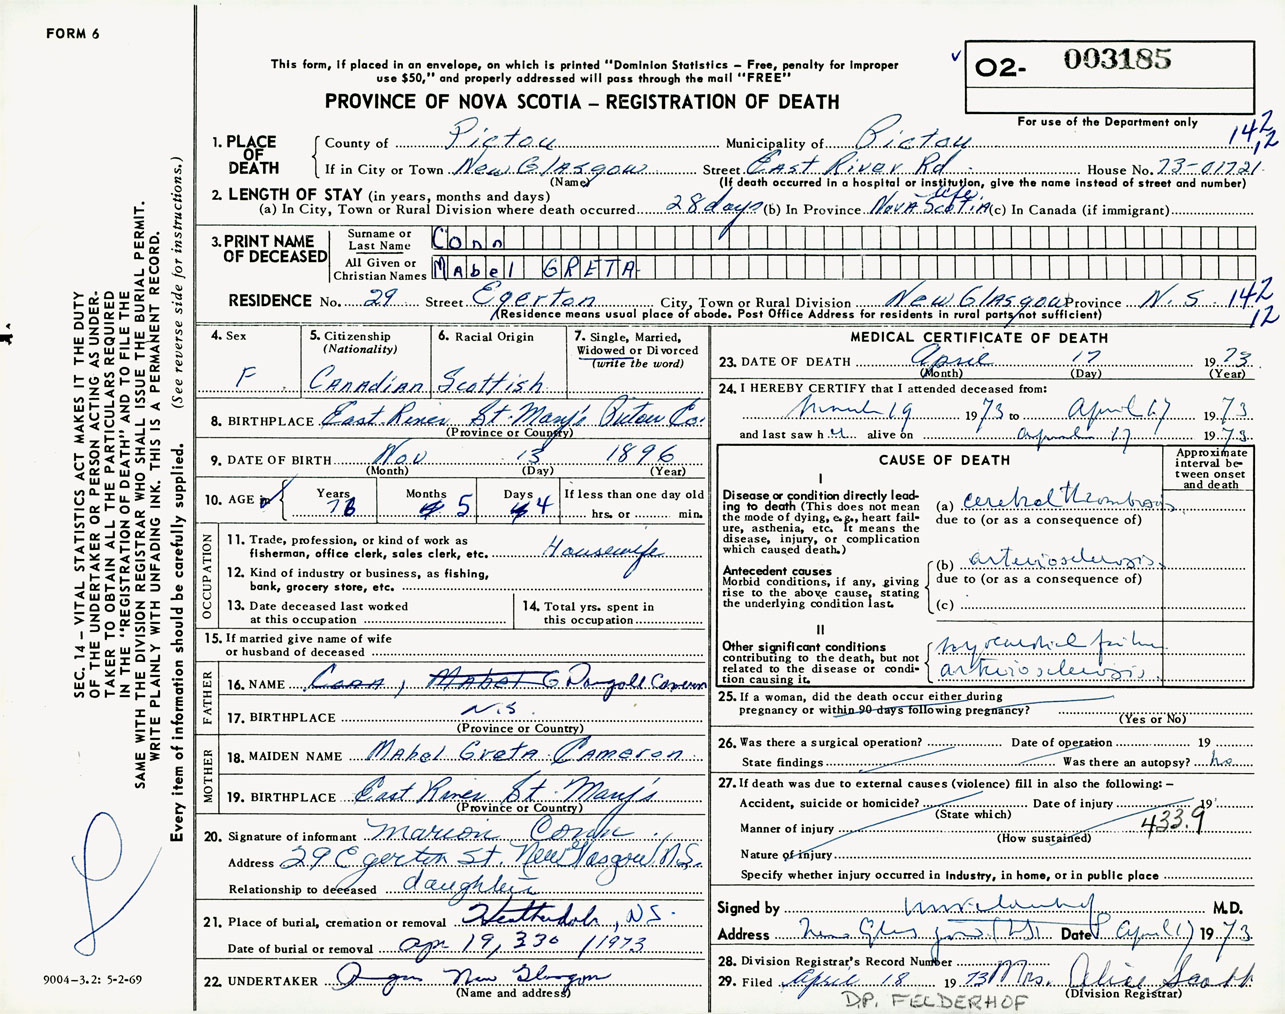 FORM 6
This form, if placed in an envelope, on which is printed "Dominion Statistics – Free, penalty for improper
use $50," and properly addressed will pass through the mail "FREE"
PROVINCE OF NOVA SCOTIA – REGISTRATION OF DEATH
02- 003185
For use of the Department only
142
12
1. PLACE OF DEATH
County of Pictou Municipality of Pictou
If in City or Town New Glasgow Street East River Rd House No. 73-01721
(Name) (If death occurred in a hospital or institution, give the name instead of street and number)
2. LENGTH OF STAY (in years, months and days)
life
(a) In City, Town or Rural Division where death occurred 28 days (b) In Province Nova Scotia (c) In Canada (if immigrant)
3. PRINT NAME OF DECEASED
Surname or Last Name Conn
All Given or Christian Names Mabel GRETA
RESIDENCE No. 29 Street Egerton City, Town or Rural Division New Glasgow Province N.S. 142
(Residence means usual place of abode. Post Office Address for residents in rural parts not sufficient) 12
4. Sex F
5. Citizenship (Nationality) Canadian
6. Racial Origin Scottish
7. Single, Married, Widowed or Divorced (write the word)
8. BIRTHPLACE East River St. Mary's Pictou Co.
(Province or Country)
9. DATE OF BIRTH Nov 13 1896
(Month) (Day) (Year)
10. AGE Years 76 Months 5 Days 4 If less than one day old
hrs. or min.
OCCUPATION
11. Trade, profession, or kind of work as
fisherman, office clerk, sales clerk, etc. Housewife
12. Kind of industry or business, as fishing,
bank, grocery store, etc.
13. Date deceased last worked
at this occupation
14. Total yrs. spent in
this occupation
15. If married give name of wife
or husband of deceased
FATHER
16. NAME Conn, Mabel G Dougall Cameron
17. BIRTHPLACE N.S.
(Province or Country)
MOTHER
18. MAIDEN NAME Mabel Greta Cameron
19. BIRTHPLACE East River St. Mary's
(Province or Country)
20. Signature of informant Marion Conn
Address 29 Egerton St. New Glasgow, N.S.
Relationship to deceased daughter
21. Place of burial, cremation or removal Heatherdale, N.S.
Date of burial or removal Apr 19, 330 /1973
22. UNDERTAKER New Glasgow
(Name and address)
MEDICAL CERTIFICATE OF DEATH
23. DATE OF DEATH April 17 1973
(Month) (Day) (Year)
24. I HEREBY CERTIFY that I attended deceased from:
March 19 1973 to April 17 1973
and last saw her alive on April 17 1973
CAUSE OF DEATH
Approximate interval between onset and death
I
Disease or condition directly lead-
ing to death (This does not mean
the mode of dying, e.g., heart fail-
ure, asthenia, etc. It means the
disease, injury, or complication
which caused death.)
(a) cerebral thrombosis
due to (or as a consequence of)
Antecedent causes
Morbid conditions, if any, giving
rise to the above cause, stating
the underlying condition last.
(b) arteriosclerosis
due to (or as a consequence of)
(c)
II
Other significant conditions
contributing to the death, but not
related to the disease or condi-
tion causing it.
myocardial failure
arteriosclerosis
25. If a woman, did the death occur either during
pregnancy or within 90 days following pregnancy?
(Yes or No)
26. Was there a surgical operation? Date of operation 19
State findings Was there an autopsy? no
27. If death was due to external causes (violence) fill in also the following: –
Accident, suicide or homicide? Date of injury 19
(State which)
Manner of injury 433.9
(How sustained)
Nature of injury
Specify whether injury occurred in industry, in home, or in public place
Signed by M.D.
Address New Glasgow N.S. Date April 17 1973
28. Division Registrar's Record Number
29. Filed April 18 1973 Mrs. Alice Scott
(Division Registrar)
D.P. FELDERHOF
SEC. 14 – VITAL STATISTICS ACT MAKES IT THE DUTY
OF THE UNDERTAKER OR PERSON ACTING AS UNDER-
TAKER TO OBTAIN ALL THE PARTICULARS REQUIRED
IN THE "REGISTRATION OF DEATH" AND TO FILE THE
SAME WITH THE DIVISION REGISTRAR WHO SHALL ISSUE THE BURIAL PERMIT.
WRITE PLAINLY WITH UNFADING INK. THIS IS A PERMANENT RECORD.
Every item of information should be carefully supplied. (See reverse side for instructions.)
9004-3.2: 5-2-69